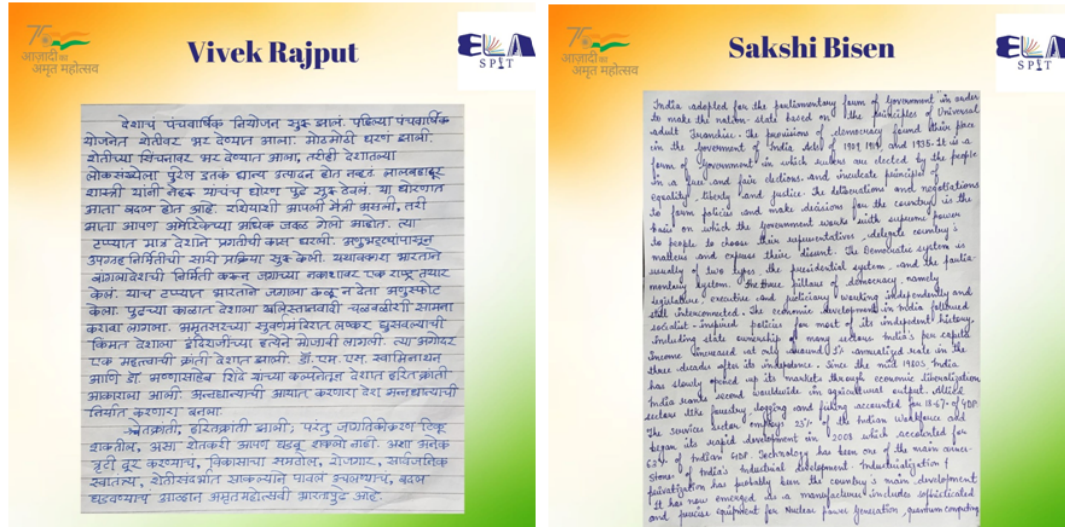 आज़ादी का
अमृत महोत्सव
Vivek Rajput
ELA
SPIT
देशाचं पंचवार्षिक नियोजन सुरू झालं. पहिल्या पंचवार्षिक
योजनेत शेतीवर भर देण्यात आला. मोठमोठी धरणं झाली.
शेतीच्या सिंचनावर भर देण्यात आला, तरीही देशातल्या
लोकसंख्येला पुरेल इतकं धान्य उत्पादन होत नव्हतं. लालबहादूर
शास्त्री यांनी नेहरू यांचंच धोरण पुढे सुरू ठेवलं. या धोरणात
आता बदल होत आहे. रशियाशी आपली मैत्री असली, तरी
आता आपण अमेरिकेच्या अधिक जवळ गेलो आहोत. त्या
टप्प्यात मात्र देशाने प्रगतीची कास धरली. अणुभट्ट्यांपासून
उपग्रह निर्मितीची सारी प्रक्रिया सुरू केली. यथावकाश भारताने
बांगलादेशची निर्मिती करून जगाच्या नकाशावर एक राष्ट्र तयार
केलं. याच टप्प्यात भारताने जगाला कळू न देता अणुस्फोट
केला. पुढच्या काळात देशाला खलिस्तानवादी चळवळीशी सामना
करावा लागला. अमृतसरच्या सुवर्णमंदिरात लष्कर घुसवल्याची
किंमत देशाला इंदिराजींच्या हत्येने मोजावी लागली. त्या अगोदर
एक महत्त्वाची क्रांती देशात झाली. डॉ. एम. एस. स्वामिनाथन
आणि डॉ. अण्णासाहेब शिंदे यांच्या कल्पनेतून देशात हरित क्रांती
आकाराला आली. अन्नधान्याची आयात करणारा देश अन्नधान्याची
निर्यात करणारा बनला.
श्वेतक्रांती, हरितक्रांती झाली; परंतु जागतिकीकरण टिकू
शकतील, असा शेतकरी आपण घडवू शकलो नाही. अशा अनेक
त्रुटी दूर करण्याचं, विकासाचा समतोल, रोजगार, सार्वजनिक
स्वातंत्र्य, शेतीसंदर्भात साकल्याने पावलं उचलण्याचं, बदल
घडवण्याचं आव्हान अमृतमहोत्सवी भारतापुढे आहे.
आज़ादी का
अमृत महोत्सव
Sakshi Bisen
ELA
SPIT
India adopted for the parliamentary form of Government in order
to make the nation-state based on the principles of Universal
adult Franchise. The provisions of democracy found their place
in the government of India Acts of 1909, 1919, and 1935. It is a
form of Government in which rulers are elected by the people
in a free and fair elections and inculcate principle of
equality, liberty and justice. The deliberations and negotiations
to form policies and make decisions for the country is the
basis on which the government works with supreme power
to people to choose their representatives, delegate country's
matters and express their dissent. The Democratic system is
usually of two types, the presidential system, and the parlia-
mentary system. The three pillars of democracy, namely
legislature, executive and judiciary working independently and
still interconnected. The economic development in India followed
socialist-inspired policies for most of its independent history,
including state ownership of many sectors India's per capita
Income increased at only around 1% annualized rate in the
three decades after its independence. Since the mid 1980s India
has slowly opened up its markets through economic liberalization
India ranks second worldwide in agricultural output. Allied
sectors like forestry logging and fishing accounted for 18.6% of GDP
The services sector employs 23% of the Indian workforce and
began its rapid development in 2003 which accounted for
62% of Indian GDP. Technology has been one of the main corner-
stones of India's Industrial development. Industrialization &
privatization has probably been the country's main development
It has now emerged as a manufacturer includes sophisticated
and precise equipment for Nuclear power Generation, quantum computing